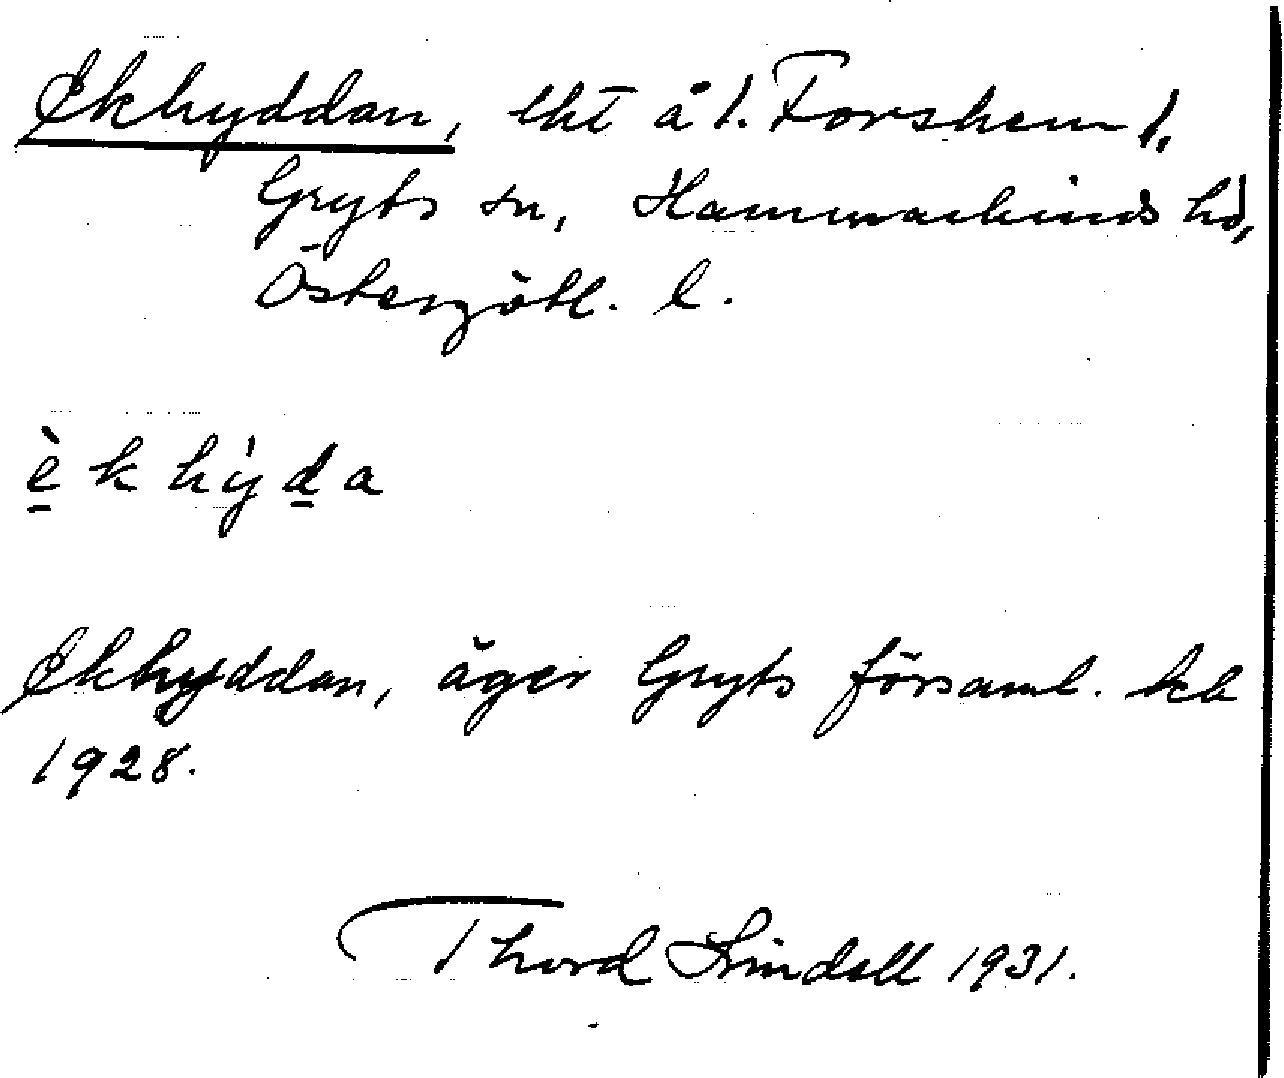 Ekhyddan, lht å 1. Forshem 1,
Gryts sn, Hammarkinds hd,
Östergötl. l.
è k hý d a
Ekhyddan, äger Gryts församl. kb
1928.
Thord Lindell 1931.